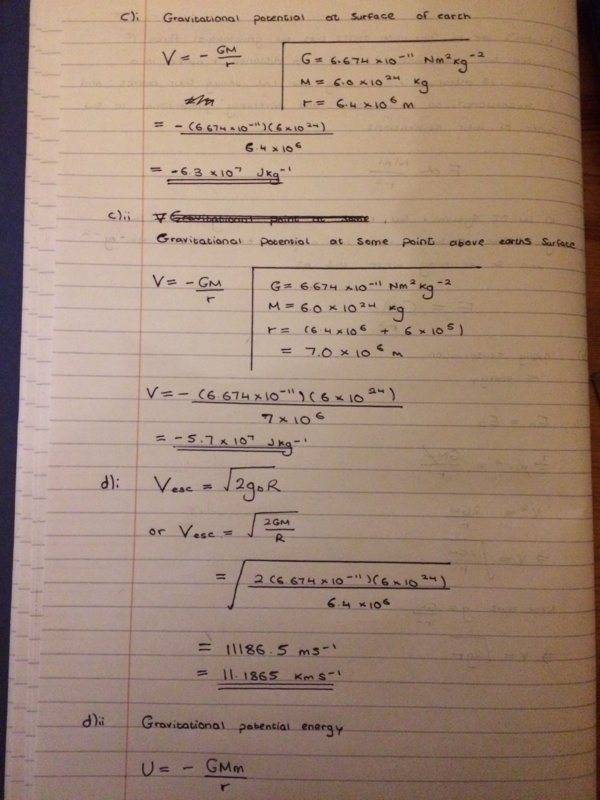 c)i Gravitational potential at surface of earth
V = - GM/r
G = 6.674 x 10⁻¹¹ Nm²kg⁻²
M = 6.0 x 10²⁴ kg
r = 6.4 x 10⁶ m
= -(6.674 x 10⁻¹¹)(6 x 10²⁴)
6.4 x 10⁶
= -6.3 x 10⁷ Jkg⁻¹
c)ii
Gravitational Potential at some point above earths surface
V = -GM/r
G = 6.674 x 10⁻¹¹ Nm²kg⁻²
M = 6.0 x 10²⁴ kg
r = (6.4 x 10⁶ + 6 x 10⁵)
= 7.0 x 10⁶ m
V = - (6.674 x 10⁻¹¹)(6 x 10²⁴)
7 x 10⁶
= -5.7 x 10⁷ Jkg⁻¹
d)i Vesc = √2g₀R
or Vesc = √2GM/R
= √2(6.674 x 10⁻¹¹)(6 x 10²⁴)
6.4 x 10⁶
= 11186.5 ms⁻¹
= 11.1865 Kms⁻¹
d)ii Gravitational potential energy
U = - GMm/r